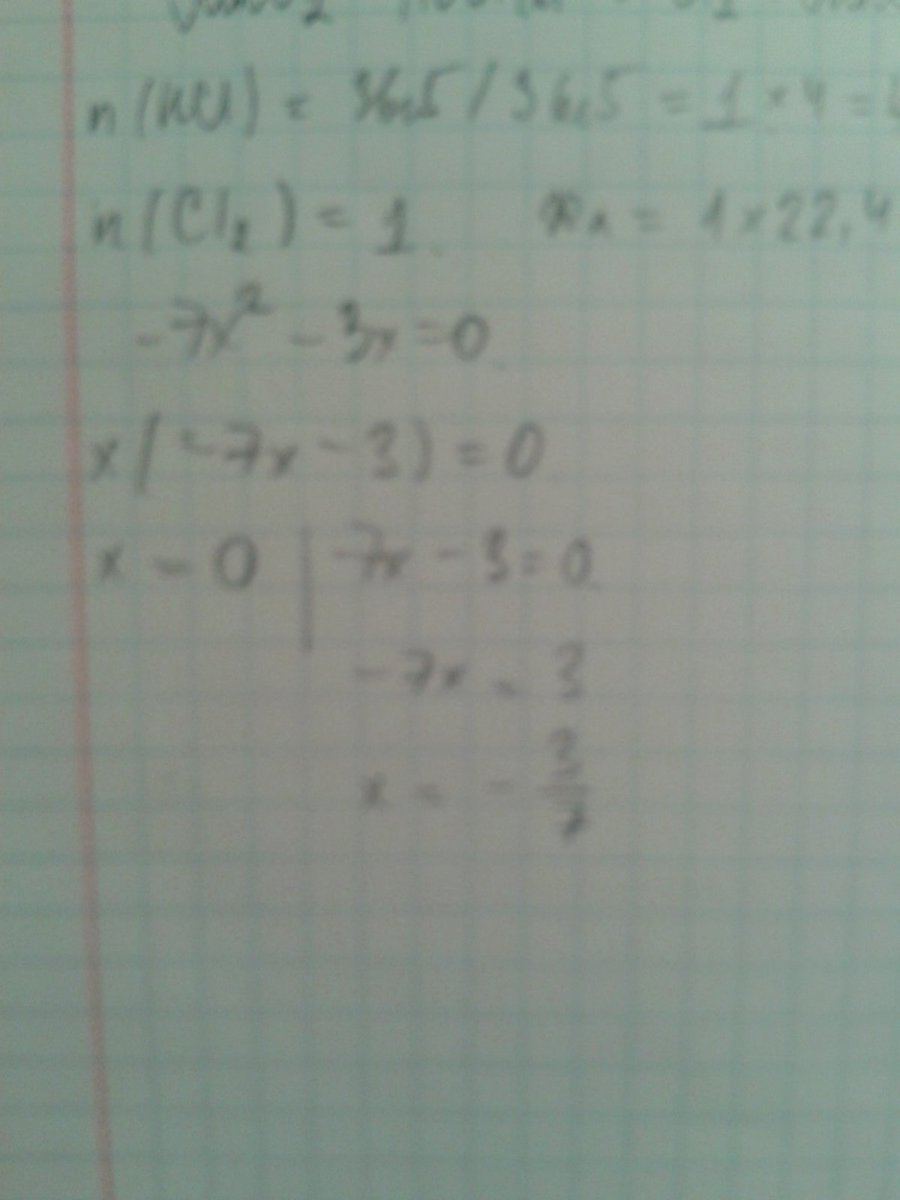 n(HCl) = 36,5 / 36,5 = 1 × 4 =
n(Cl₂) = 1. = 1 × 22,4
-7x² - 3x = 0
x(-7x - 3) = 0
x = 0 | -7x - 3 = 0
-7x = 3
x = - 3/7